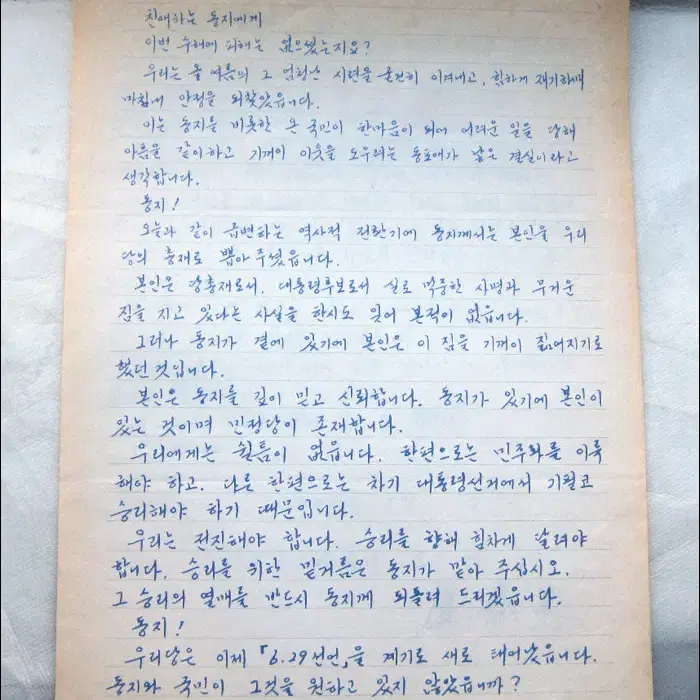 친애하는 동지에게
이번 수해에 피해는 없으셨는지요?
우리는 올 여름의 그 엄청난 시련을 굳건히 이겨내고, 힘차게 재기하며
마침내 안정을 되찾았읍니다.
이는 동지를 비롯한 온 국민이 한마음이 되어 어려운 일을 당해
아픔을 같이하고 기꺼이 이웃을 도우려는 동포애가 낳은 결실이라고
생각합니다.
동지!
오늘과 같이 급변하는 역사적 전환기에 동지께서는 본인을 우리
당의 총재로 뽑아 주셨읍니다.
본인은 당총재로서, 대통령후보로서 실로 막중한 사명과 무거운
짐을 지고 있다는 사실을 한시도 잊어 본적이 없읍니다.
그러나 동지가 곁에 있기에 본인은 이 짐을 기꺼이 짊어지기로
했던 것입니다.
본인은 동지를 깊이 믿고 신뢰합니다. 동지가 있기에 본인이
있는 것이며 민정당이 존재합니다.
우리에게는 쉴틈이 없읍니다. 한편으로는 민주화를 이룩
해야 하고, 다른 한편으로는 차기 대통령선거에서 기필코
승리해야 하기 때문입니다.
우리는 전진해야 합니다. 승리를 향해 힘차게 달려야
합니다. 승리를 위한 밑거름은 동지가 맡아 주십시오.
그 승리의 열매를 반드시 동지께 되돌려 드리겠읍니다.
동지!
우리당은 이제 「6.29선언」을 계기로 새로 태어났읍니다.
동지와 국민이 그것을 원하고 있지 않았읍니까?